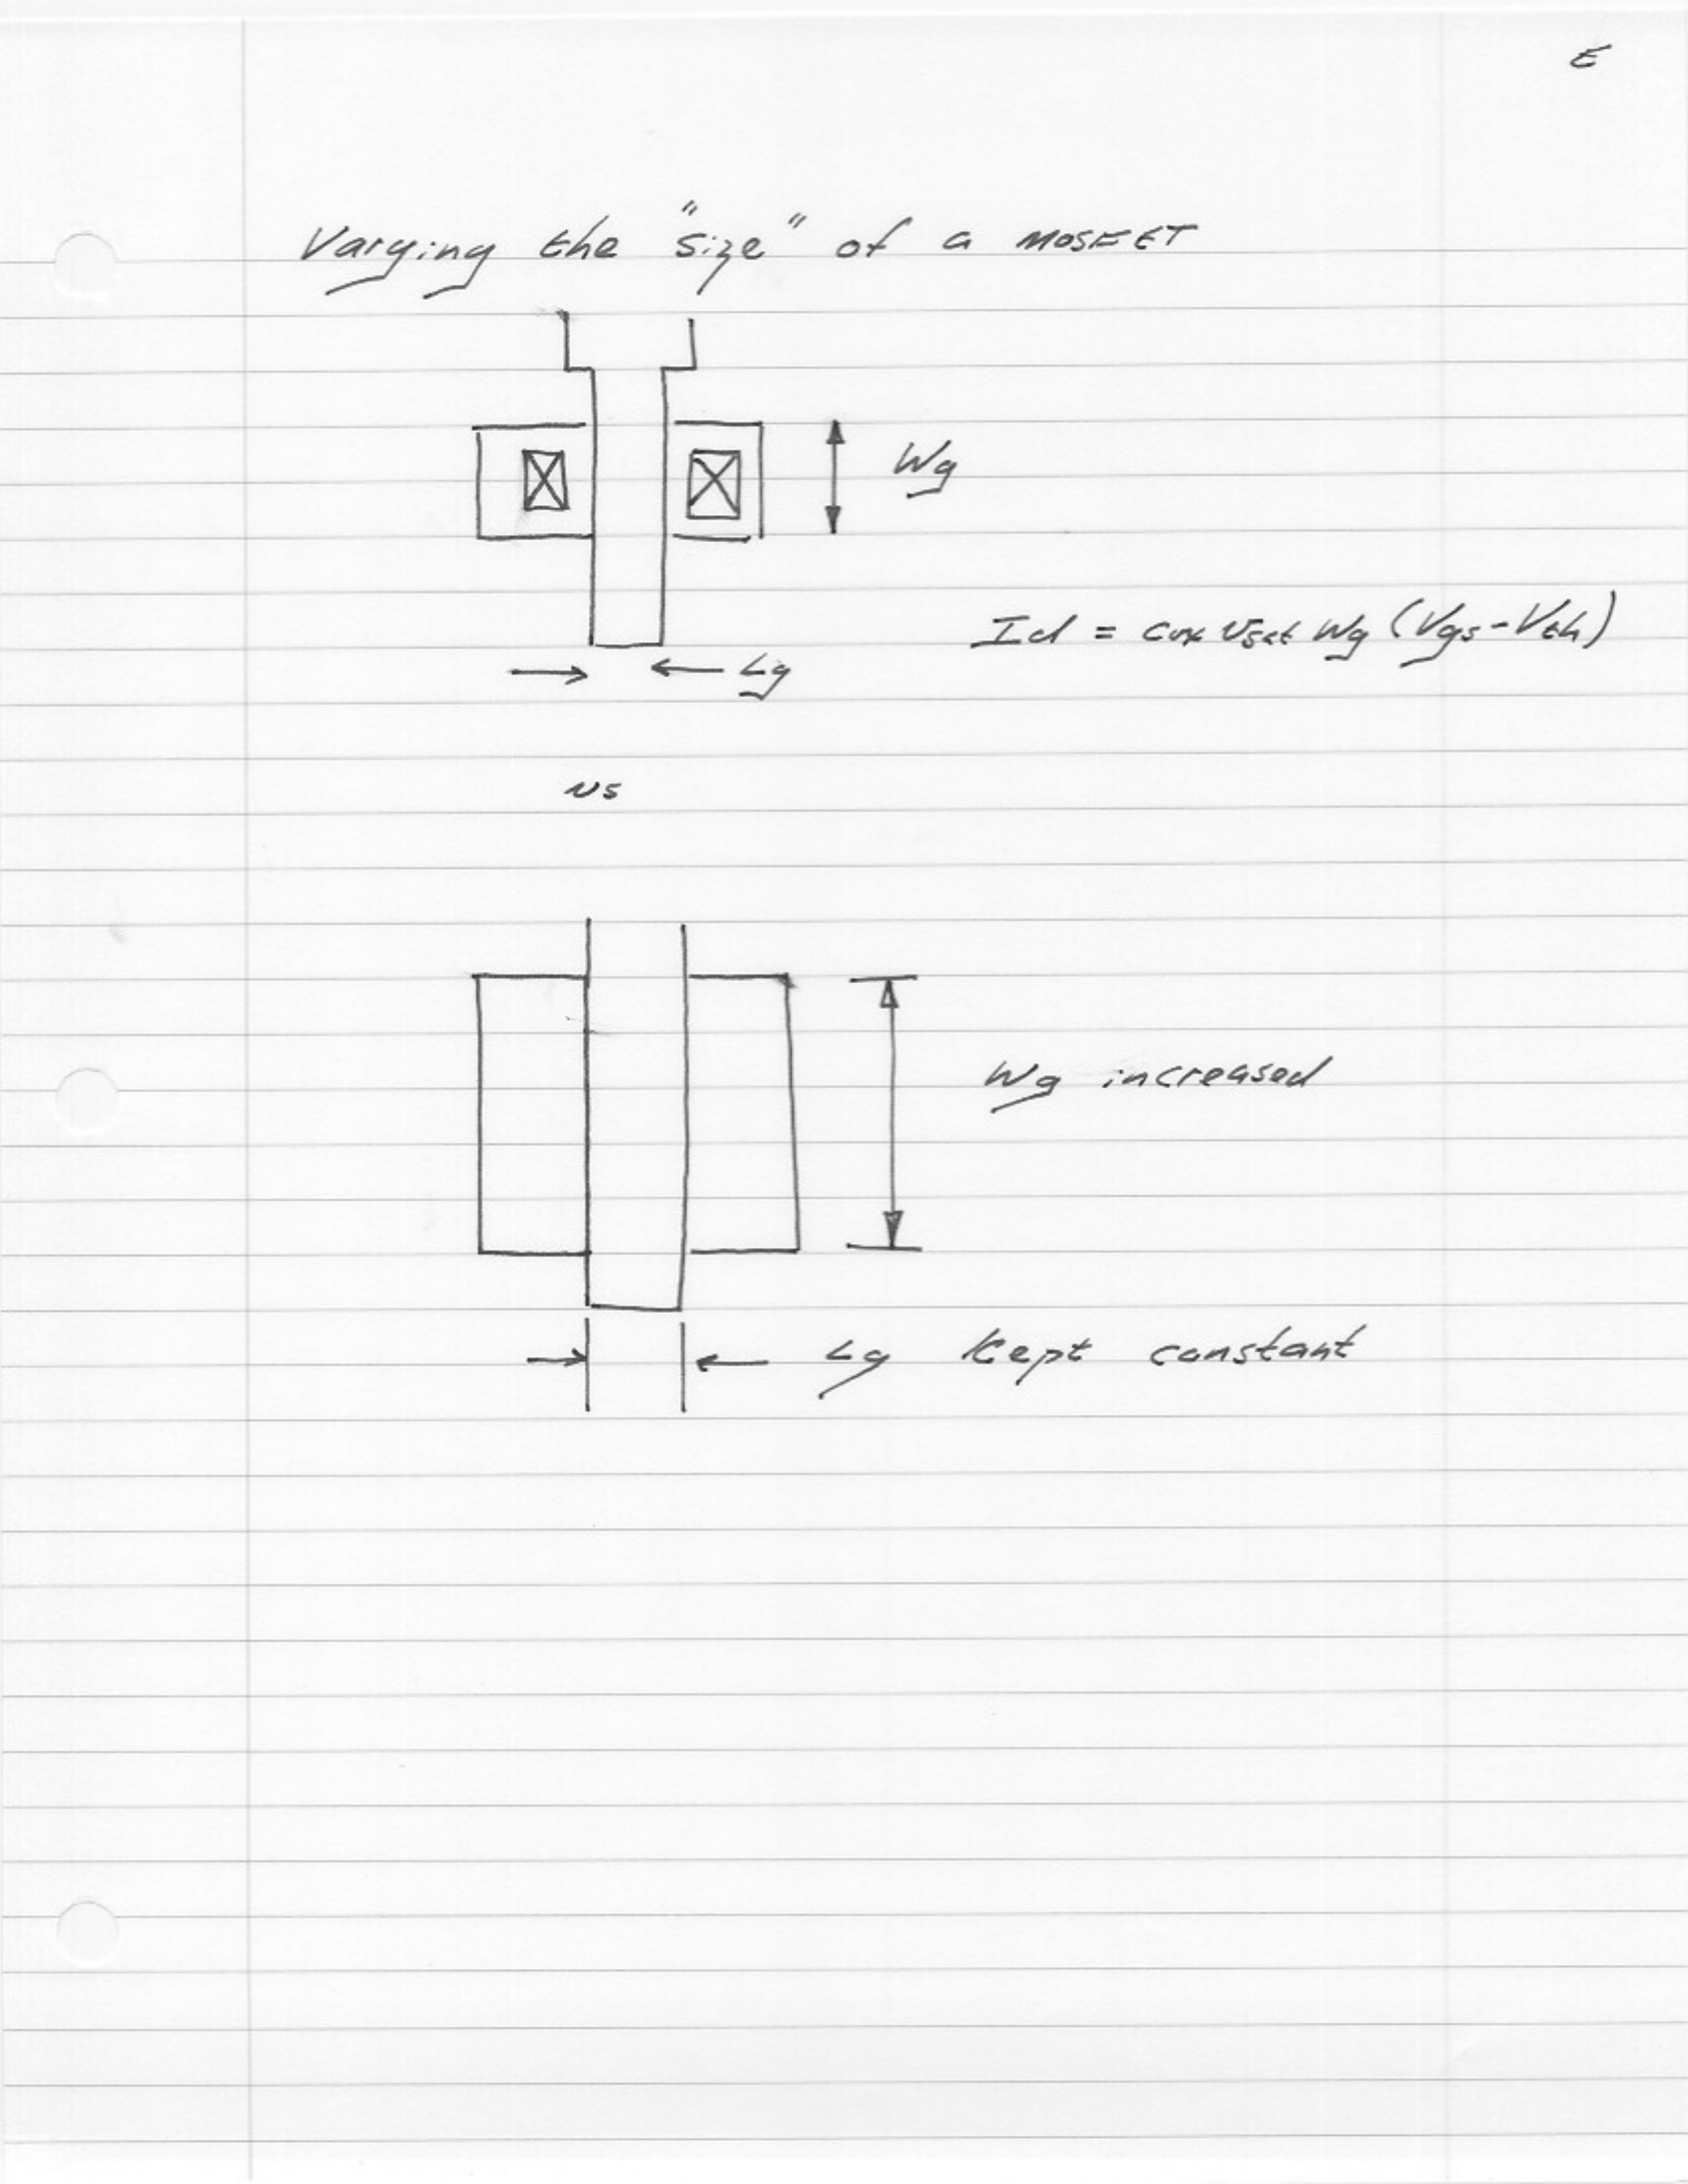 E
Varying the "size" of a MOSFET
Wg
Id = cox vsat Wg (Vgs-Vth)
Lg
vs
Wg increased
Lg kept constant